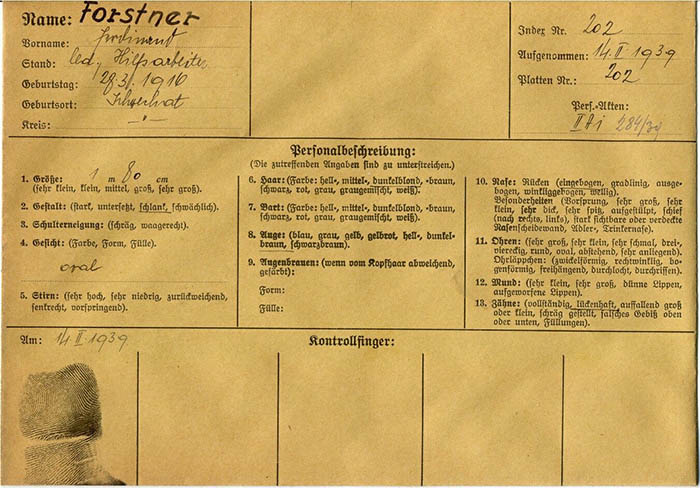 Name: Forstner
Vorname: Ferdinand
Stand: led., Hilfsarbeiter
Geburtstag: 1916
Geburtsort: Schwechat
Kreis: - " -
Index Nr. 202
Aufgenommen: 14.II.1939
Platten Nr.: 202
Pers.-Akten:
284/39
Personalbeschreibung:
(Die zutreffenden Angaben sind zu unterstreichen.)
1. Größe: 1 m 80 cm
(sehr klein, klein, mittel, groß, sehr groß).
2. Gestalt: (stark, untersetzt, schlank, schwächlich).
3. Schulterneigung: (schräg, waagerecht).
4. Gesicht: (Farbe, Form, Fülle).
oval
5. Stirn: (sehr hoch, sehr niedrig, zurückweichend,
senkrecht, vorspringend).
6. Haar: (Farbe: hell-, mittel-, dunkelblond, -braun,
schwarz, rot, grau, graugemischt, weiß).
7. Bart: (Farbe: hell-, mittel-, dunkelblond, -braun,
schwarz, rot, grau, graugemischt, weiß).
8. Auge: (blau, grau, gelb, gelbrot, hell-, dunkel-
braun, schwarzbraun).
9. Augenbrauen: (wenn vom Kopfhaar abweichend,
gefärbt):
Form:
Fülle:
10. Nase: Rücken (eingebogen, gradlinig, ausge-
bogen, winkliggebogen, wellig).
Besonderheiten (Vorsprung, sehr groß, sehr
klein, sehr dick, sehr spitz, aufgestülpt, schief
(nach rechts, links), stark sichtbare oder verdeckte
Nasenscheidewand, Adler-, Trinkernase).
11. Ohren: (sehr groß, sehr klein, sehr schmal, drei-,
viereckig, rund, oval, abstehend, sehr anliegend).
Ohrläppchen: (zwickelförmig, rechtwinklig, bo-
genförmig, freihängend, durchlocht, durchrissen).
12. Mund: (sehr klein, sehr groß, dünne Lippen,
aufgeworfene Lippen).
13. Zähne: (vollständig, lückenhaft, auffallend groß
oder klein, schräg gestellt, falsches Gebiß oben
oder unten, Füllungen).
Am: 14.II.1939
Kontrollfinger: